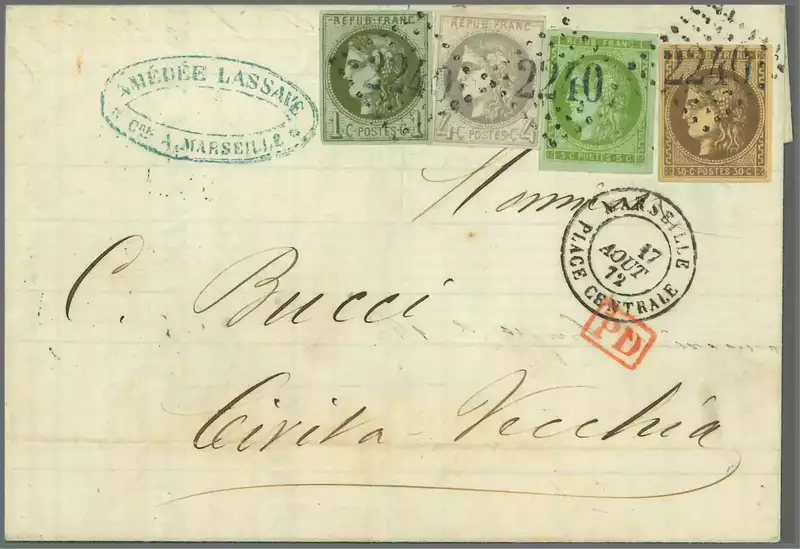 AMÉDÉE LASSAVE
& Cie A MARSEILLE
REPUB. FRANC.
1 C. POSTES 1 C.
REPUB. FRANC.
4 C. POSTES. C. 4
REPUB. FRANC.
5 C. POSTES. 5 C.
30 C. POSTES 30 C.
2240
2240
2240
Monsieur
MARSEILLE
17
AOUT
72
PLACE CENTRALE
PD
C. Bucci
Civita-Vecchia